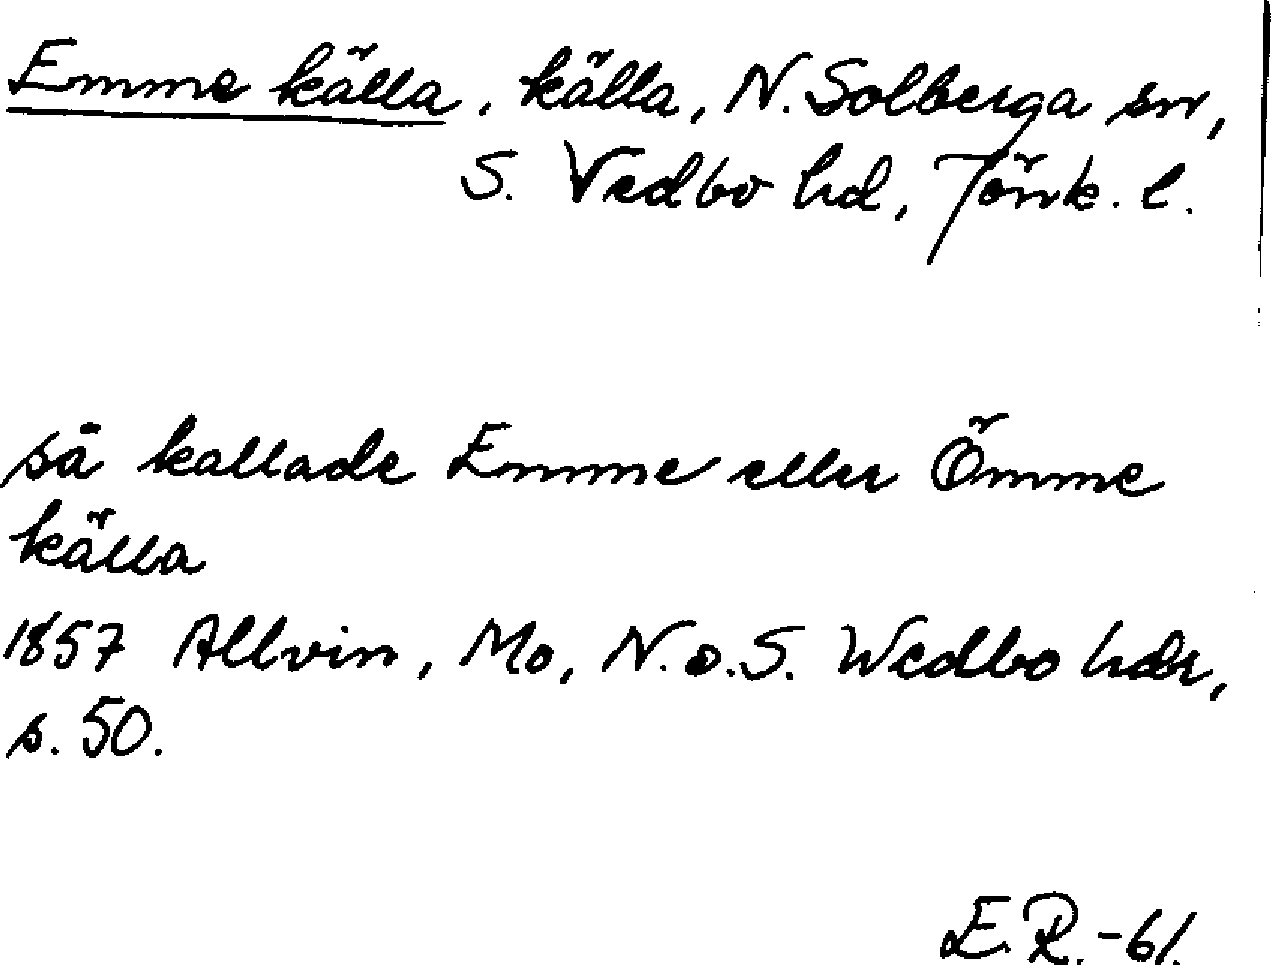 Emme källa, källa, N. Solberga sn,
S. Vedbo hd, Jönk. l.
så kallade Emme eller Ömme
källa
1857 Allvin, Mo, N. o. S. Wedbo hdr,
s. 50.
E.R.-61.